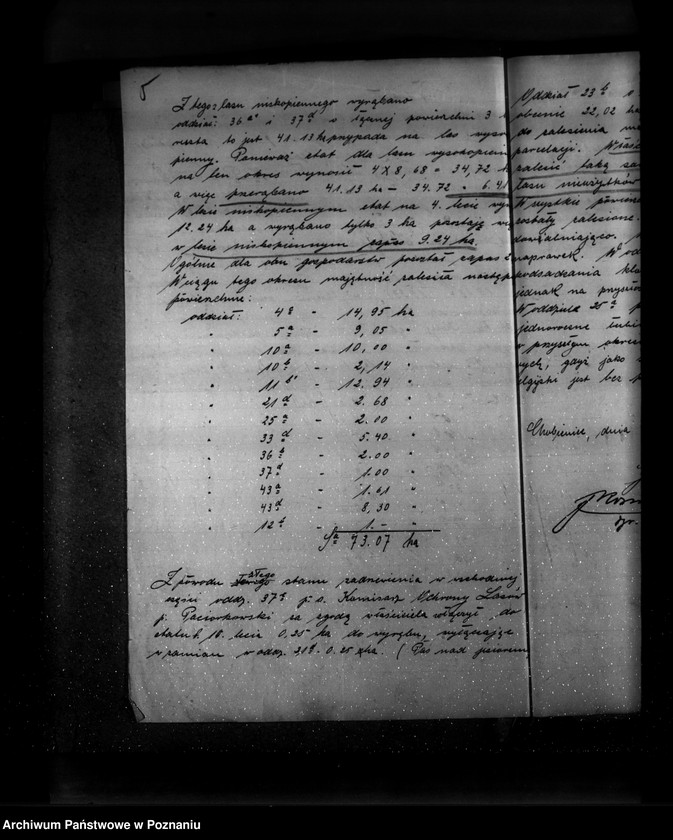 5
Z tego: lasu niskopiennego wyrąbano
oddział: 36 i 37 o łącznej powierzchni 3
reszta to jest 41.13 ha przypada na las wyso
pienny. Ponieważ etat dla lasu wysokopien
na ten okres wynosił 4 x 8,68 = 34,72
a więc przerąbano 41.13 ha - 34.72 = 6.41
W lesie niskopiennym etat na 4. lecie wyn
12.24 ha a wyrąbano tylko 3 ha pozostają
w lesie niskopiennym zapas 9.24 ha.
Ogólnie dla obu gospodarstw pozostał zapas
W ciągu tego okresu majętność zalesiła następ
powierzchnie:
oddział: 4 a - 14,95 ha
" 5 a - 9,05 "
" 10 a - 10,00 "
" 10 b - 2,14 "
" 11 - 12.94 "
" 21 d - 2.68 "
" 25 a - 2.00 "
" 33 d - 5.40 "
" 36 - 2.00 "
" 37 d - 1.00 "
" 43 a - 1.61 "
" 43 d - 8,30 "
" 12 - 1.- "
Sa 73.07 ha
Z powodu złego stanu zadrzewienia w wschodniej
części oddz. 37 p.o. Komisarz Ochrony Lasów
p. Paciorkowski za zgodą właściciela włączył do
etatu 18. lecia 0,25 ha do wyrębu, wyłączając
w zamian w oddz. 31 0.25 ha. (Pas nad jeziorem
Oddział 23
obszenie 22,02 ha
do zalesienia
parcelacji.
zalesić taką
lasu nieużytków
Wszystkie powierz
zostały zalesione.
dowalniająco.
naprawek. W od
podsadzania
jednak na przyszło
W oddziale 25 a
jednoroczne
w przyszłym okres
nych, gdyż jako
jest bez
Chobienice, dnia
Archiwum Państwowe w Poznaniu